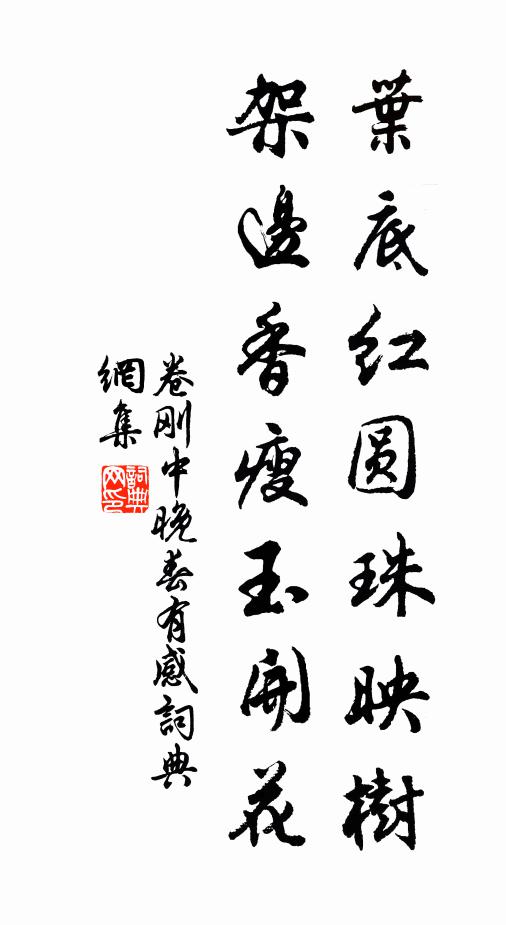 葉底紅圓珠映樹
架邊香瘦玉開花
卷剛中晚春有感詞典
網集
詞典网印